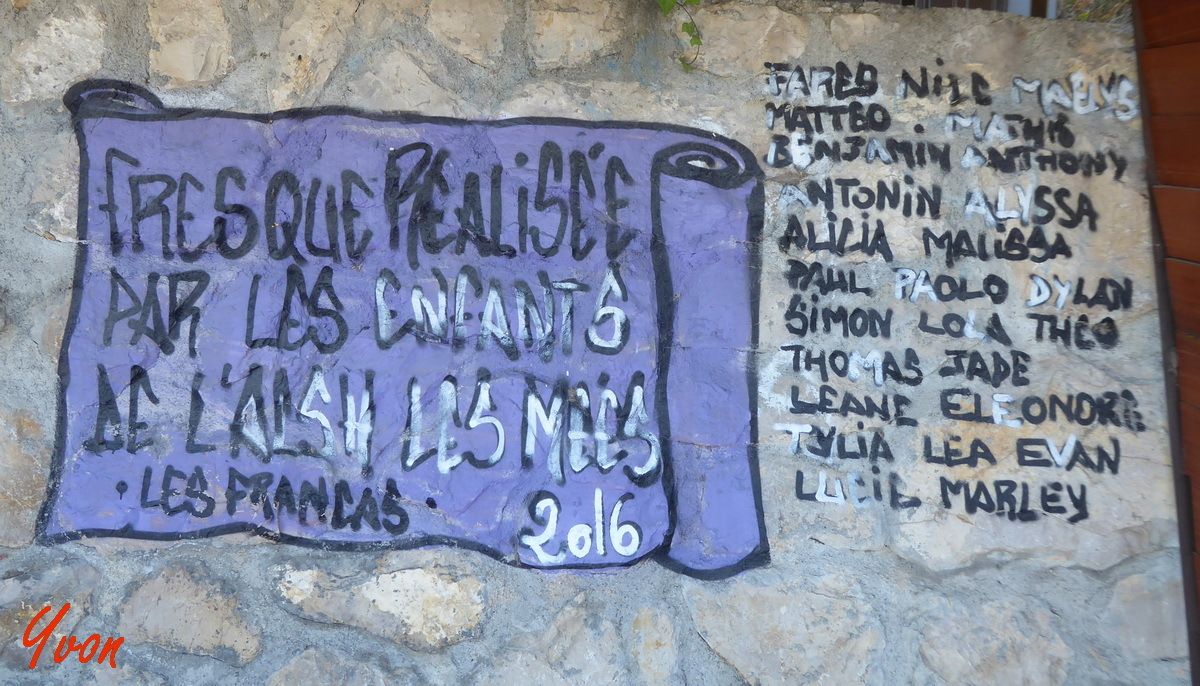 FRESQUE RÉALISÉE
PAR LES ENFANTS
DE L'ALSH LES MÉES
• LES FRANCAS •
2016
FARES NILS MAELYS
MATTEO MATHIS
BENJAMIN ANTHONY
ANTONIN ALYSSA
ALICIA MALISSA
PAUL PAOLO DYLAN
SIMON LOLA THÉO
THOMAS JADE
LEANE ELEONORE
TYLIA LEA EVAN
LUCIE MARLEY
Yvon